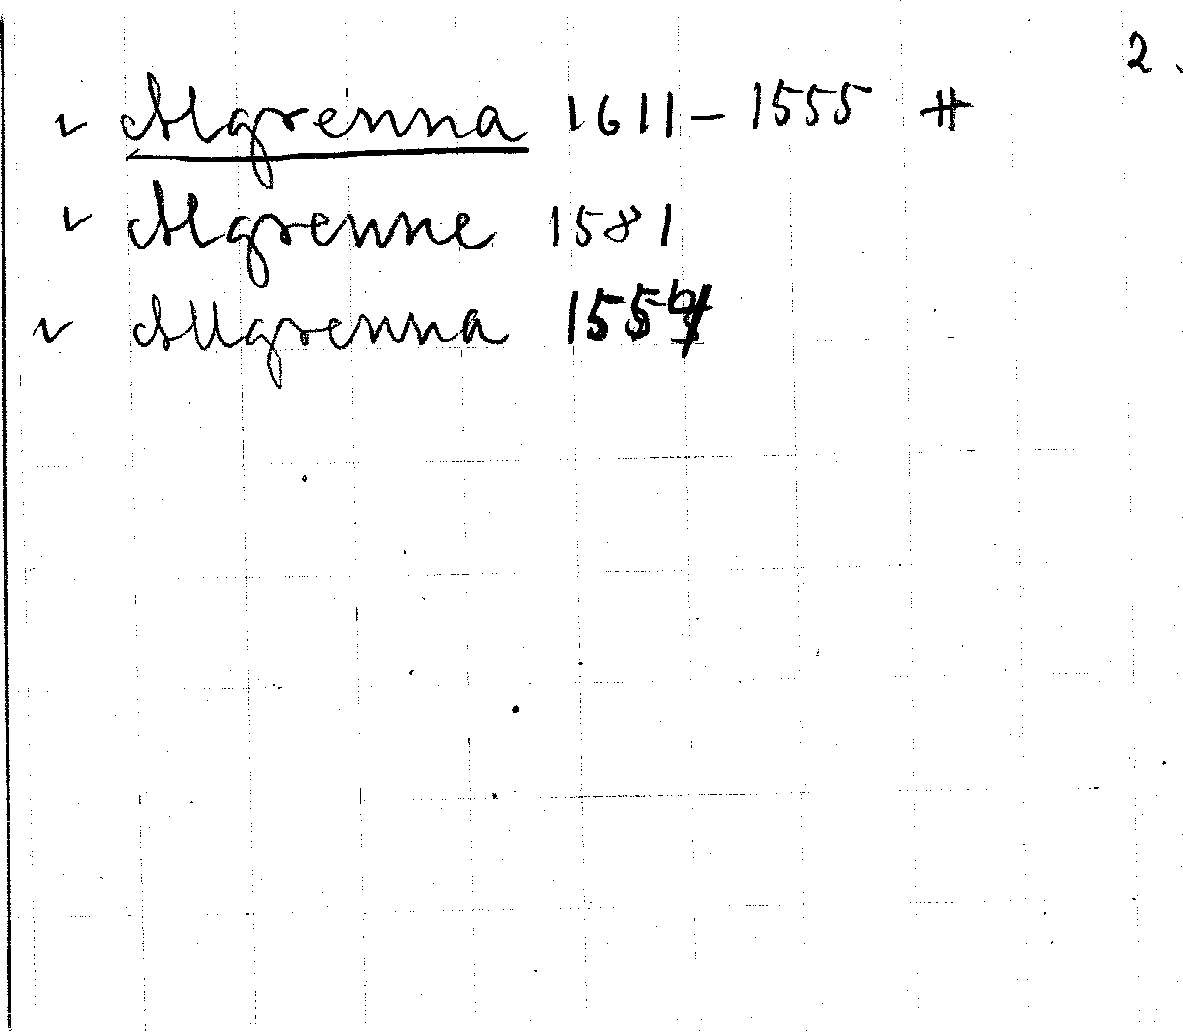 2.
✓ Algrenna 1611 – 1555 #
✓ Algrenne 1581
✓ Allgrenna